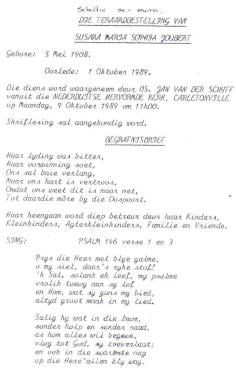 DIE TERAARDBESTELLING VAN
SUSARA MARIA SOPHIA JOUBERT
Gebore: 5 Mei 1908.
Oorlede: 1 Oktober 1989.
Die diens word waargeneem deur DS. JAN VAN DER SCHYFF
vanuit die NEDERDUITSE HERVORMDE KERK, CARLETONVILLE
op Maandag, 9 Oktober 1989 om 11h00.
Skriflesing sal aangekondig word.
BEGRAFNISBRIEF
Haar lyding was bitter,
Haar oorwinning soet,
Ons sal baie verlang,
Maar ons hart is vertroos,
Omdat ons weet dit is maar net,
Tot daardie môre by die Oospoort.
Haar heengaan word diep betreur deur haar Kinders,
Kleinkinders, Agterkleinkinders, Familie en Vriende.
SING: PSALM 146 verse 1 en 3
Prys die Heer met blye galme,
o my siel, daar's ryke stof!
'k Sal, solank ek leef, my psalme
vrolik toewy aan sy lof
en Hom, wat sy guns my bied,
altyd groot maak in my lied.
Salig hy wat in die lewe,
sonder hulp en sonder raad,
as hom alles wil begewe,
vlug tot God, sy toeverlaat;
en ook in die swartste nag
op die Here alleen bly wag.